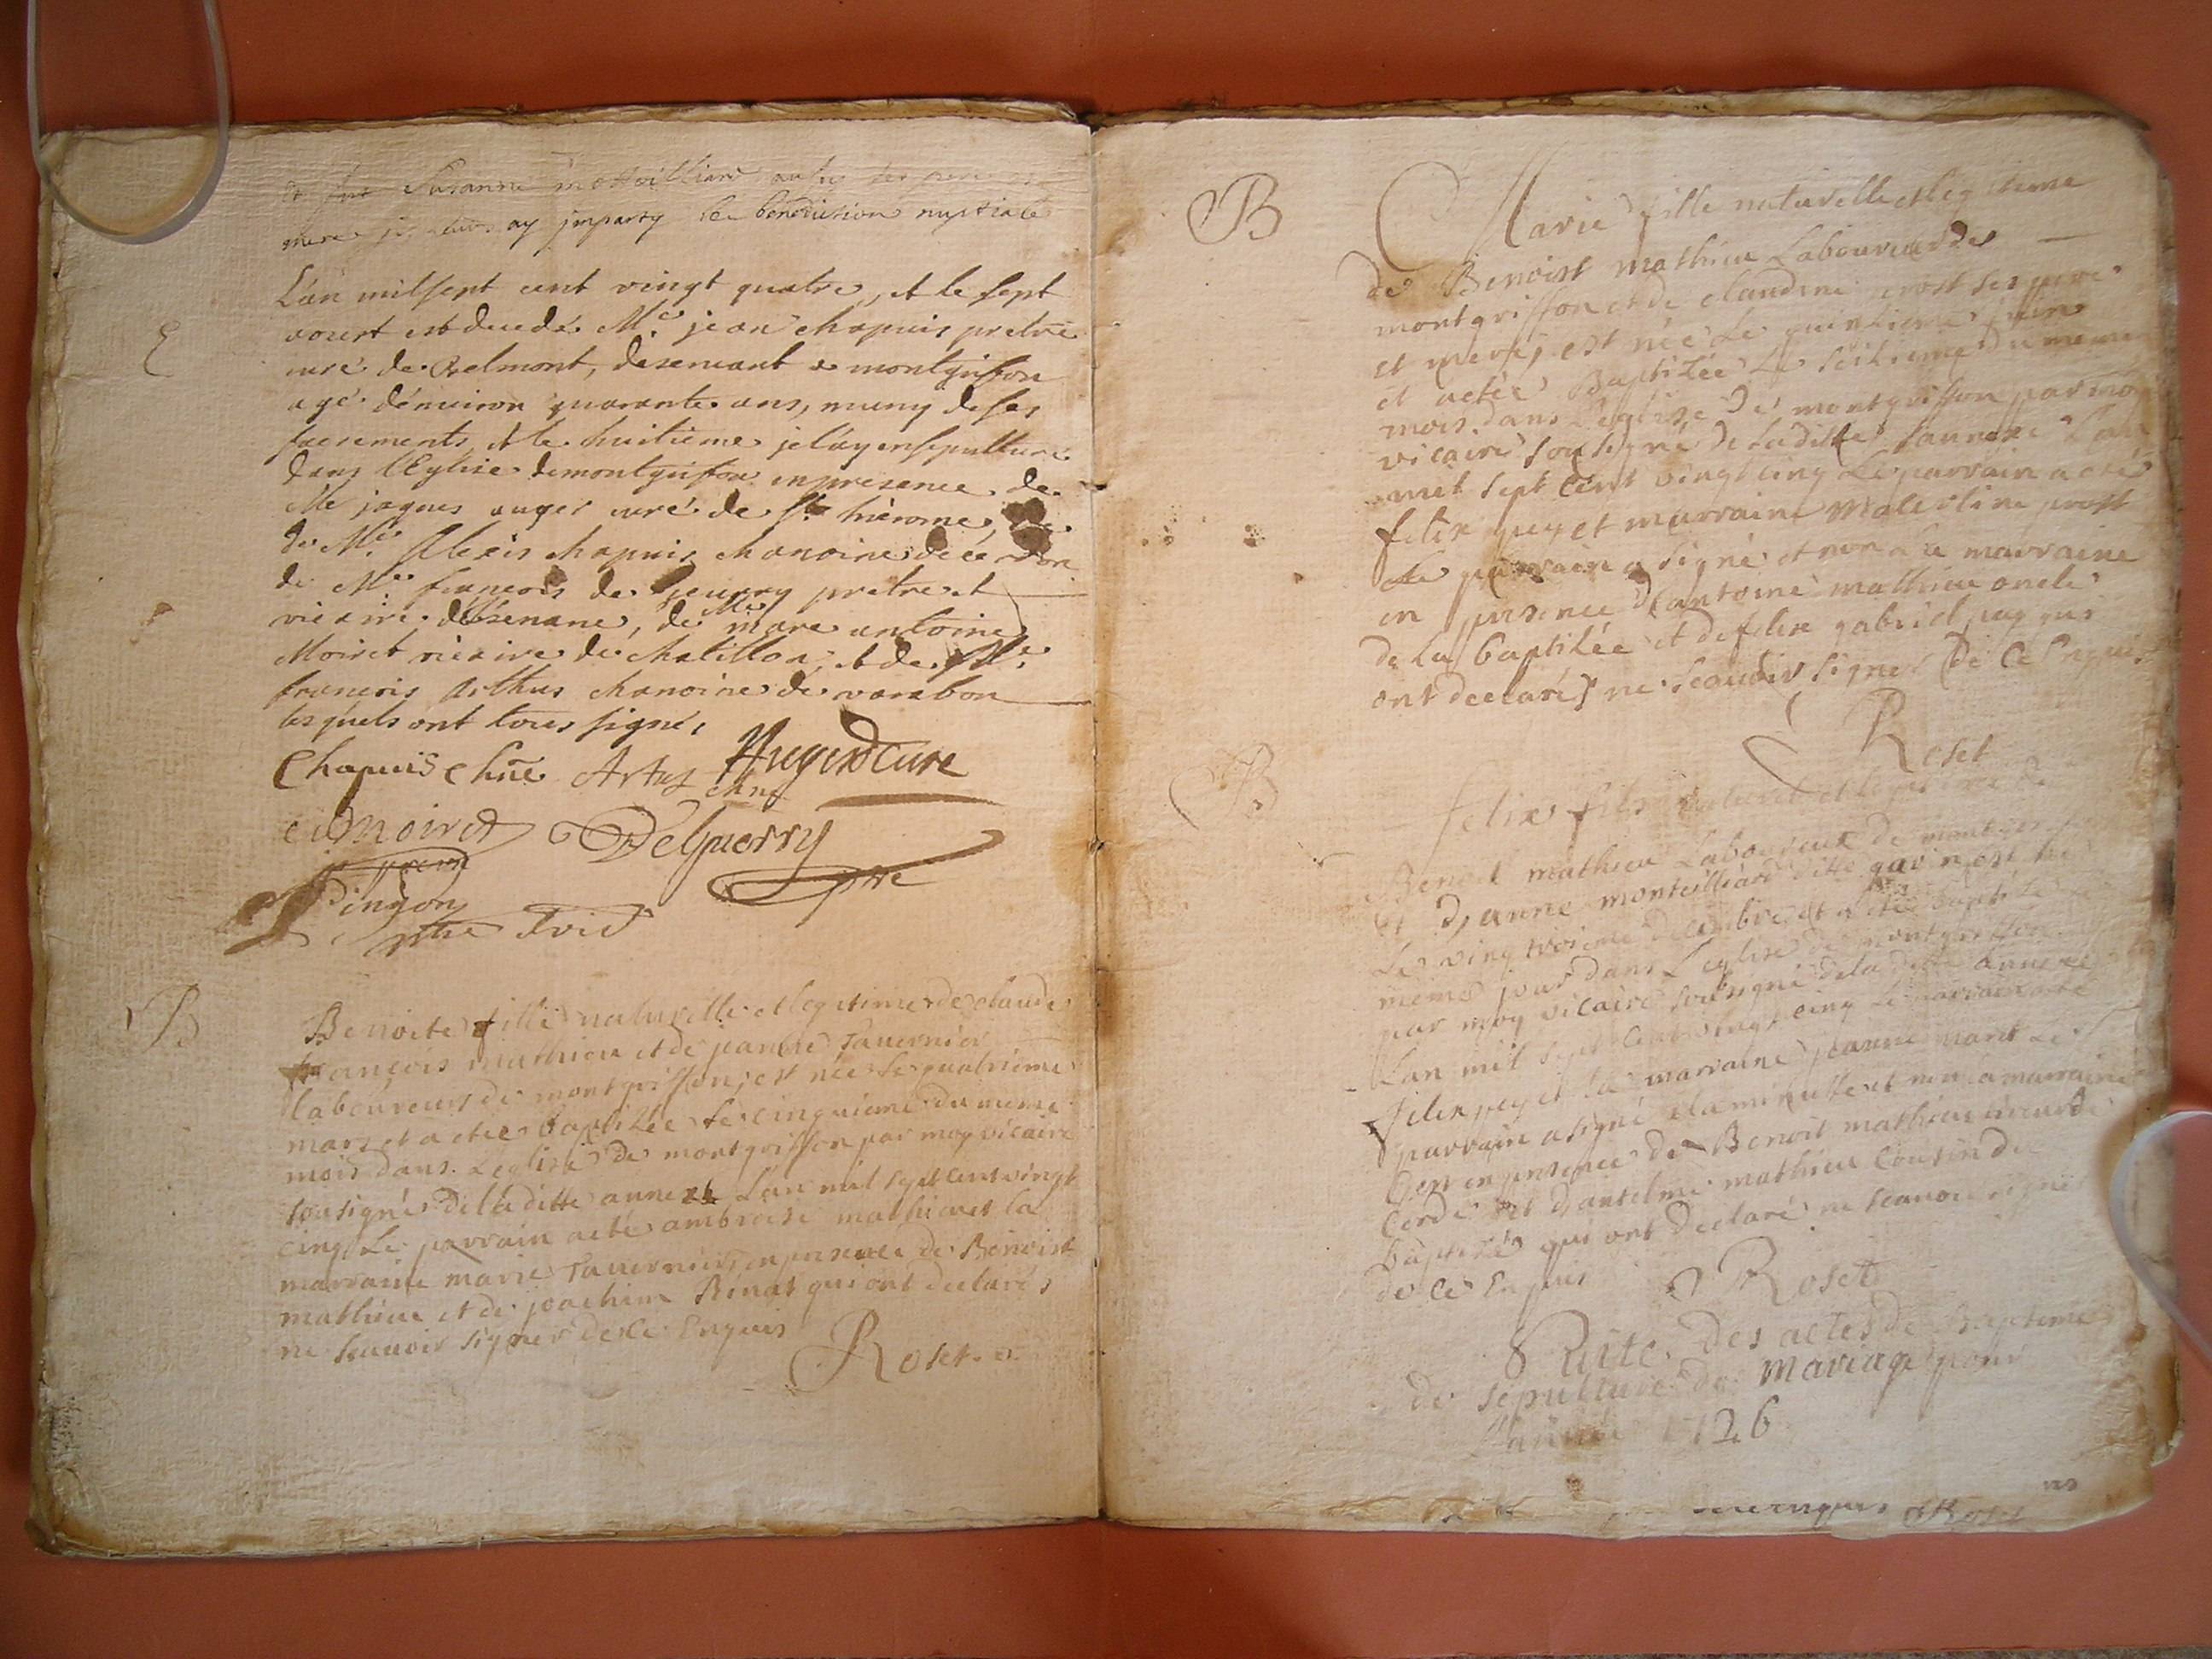 et feue Susanne montvilliand
mere je leurs ay jmparty la benediction nuptiale
E
L'an mil sept cent vingt quatre, et le sept
aoust est decedé Mre jean chapuis pretre
curé de Belmont, deservant a montgriffon
agé d'environ quarante ans, muny de ses
sacrements, et le huitieme je l'ay ensepulturé
dans l'Eglise de montgriffon en presence de
Me jaques auger curé de st hierome,
de Mre Alexis chapuis chanoine de
de Mre francois de guerry pretre et
vicaire de , de Mre marc antoine
Moiret vicaire de chatillon, et de Mre
francois Arthus chanoine de varabon
lesquels ont tous signé,
Chapuis chne Artus chne Auger Curé
Moiret Deguerry
ptre
Pingon
ptre & vic
B
Benoite fille naturelle et legitime de claude
françois mathieu et de jeanne Tavernier
laboureurs de montgriffon, est née le quatrieme
mars et a eté baptisée le cinquieme du meme
mois dans L'eglise de montgriffon par moy vicaire
sousigné de la ditte annexe L'an mil sept cent vingt
cinq Le parrain a eté ambroise mathieu et la
marraine marie Tavernier, en presence de Benoist
mathieu et de joachim Binat qui ont declarés
ne scavoir signer de ce Enquis
Roset
B
Marie fille naturelle et legitime
de Benoist mathieu Laboureur de
montgriffon et de claudine prost ses pere
et mere, est née Le quinzieme juin
et a etée Baptisée Le seizieme du meme
mois dans L'eglise de montgriffon par moy
vicaire sousigné de laditte L'annexe L'an
mil sept cent vingt cinq Le parrain a eté
felix pey et marraine prost
Le parrain a signé et non la marraine
en presence d'antoine mathieu oncle
de la baptisée et de felix gabriel pey qui
ont declarés ne scavoir signer de ce Enquis
Roset
B
felix fils naturel et legitime de
Benoit mathieu Laboureur de
et d'anne montvilliand ditte gavin, est né
Le vingt troisieme decembre et a eté baptisé le
meme jour dans L'eglise de montgriffon
par moy vicaire sousigné de la ditte annexe
L'an mil sept cent vingt cinq Le parrain a eté
felix pey et la marraine jeanne Le
parrain a signé a la minutte et non la marraine
en presence de Benoit mathieu
et d'antelme mathieu Cousin du
baptisé qui ont declaré ne scavoir signer
de ce Enquis Roset
Suite des actes de Baptemes
de sepulture de Mariage pour
L'année 1726
Enquis Roset